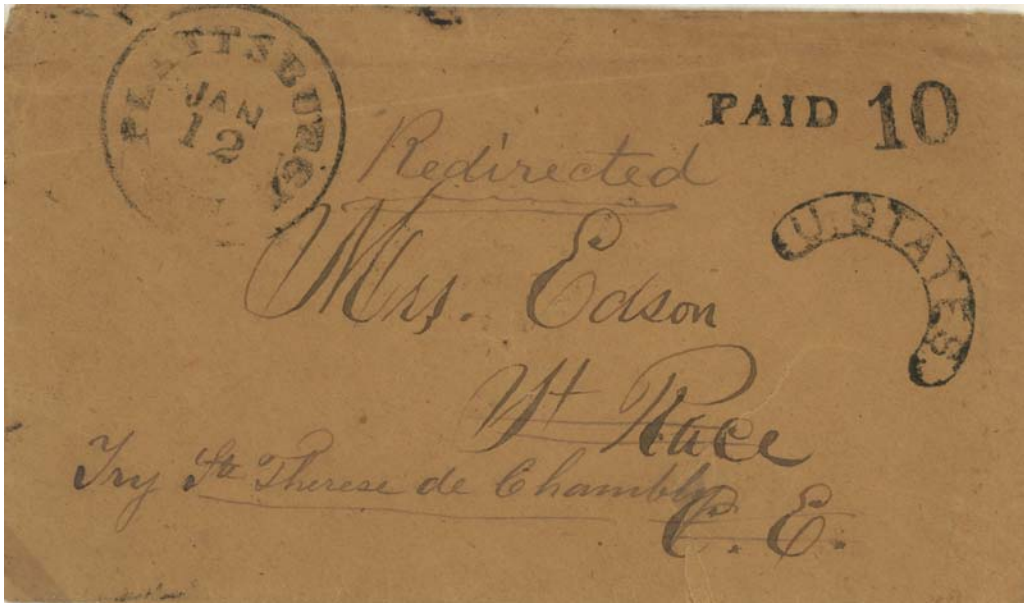 PLATTSBURG
JAN
12
PAID 10
U. STATES.
Redirected
Mrs. Edson
Race
Try Ste Therese de Chambly
C. E.